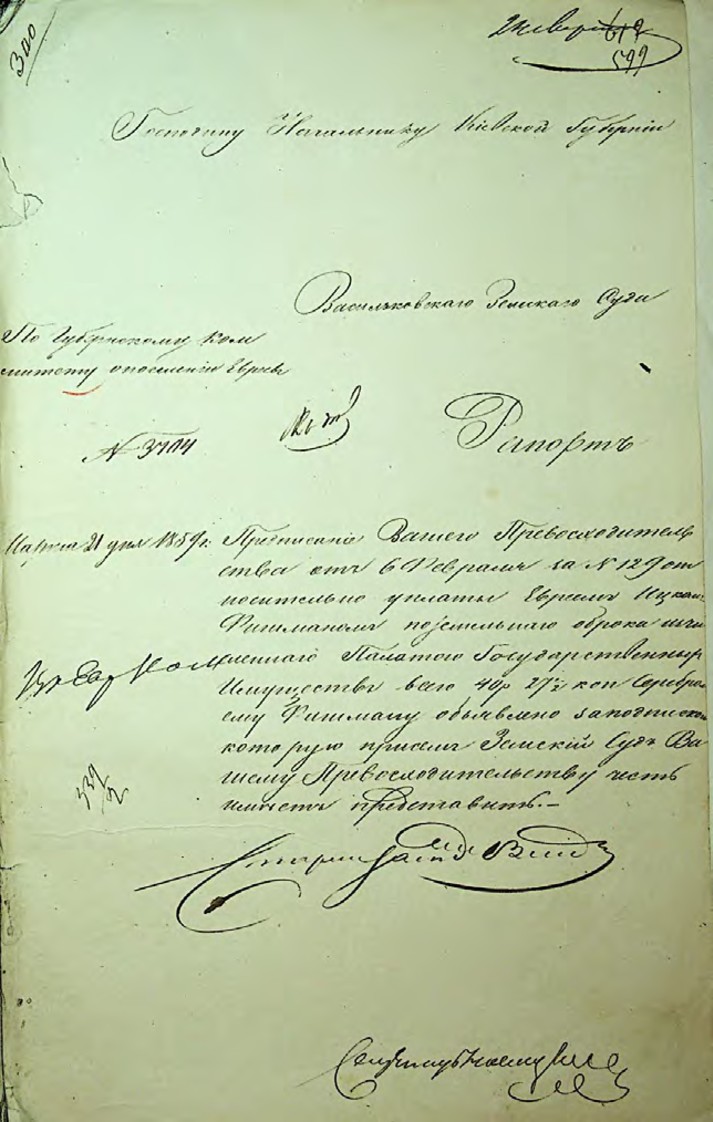 320
619
599
Господину Начальнику Кіевской Губерніи
Васильковскаго Земскаго Суда
По Губернскому Ком
митету о поселеніи Евреев
N 3704
Рапортъ
Марта 21 дня 1859 г.
Предписаніе Вашего Превосходитель
ства отъ 6 Февраля за N 129 от
носительно уплаты Евреемъ Ицкомъ
Фишманомъ поземельнаго оброка исчи
сленнаго Палатою Государственныхъ
Имуществъ всего 40 р 27½ коп Серебро
ему Фишману объявлено заподпискою
которую при семъ Земскій Судъ Ва
шему Превосходительству честь
имѣетъ представить.—